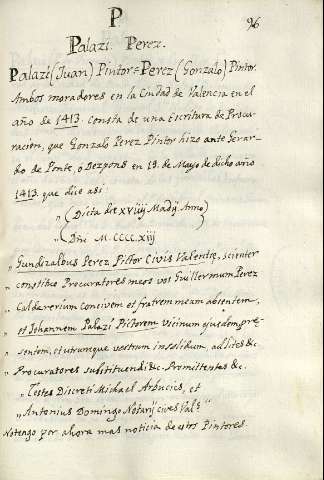 P
96
Palazi. Perez.
Palazi (Juan) Pintor = Perez (Gonzalo) Pintor.
Ambos moradores en la Ciudad de Valencia en el
año de 1413. Consta de una escritura de Procu-
racion, que Gonzalo Perez Pintor hizo ante Gerar-
do de Ponte, o Dezpons en 18. de Mayo de dicho año
1413. que dice asi
„ (Dicta die xviiij Madij. Anno)
„ (Dni M.CCCC.xiij
„ Gundizalbus Perez Pictor Civis Valentie, scienter
„ constituo Procuratores meos vos Guillermum Perez
„ Caldererium Concivem et fratrem meum absentem,
„ et Iohannem Palazi Pictorem Vicinum ejusdem pre-
„ sentem, et utrumque vestrum insolidum ad lites &c.
„ Procuratores substituendi &c. Promittentes &c.
„ Testes Discreti Michael Arbucies, et
„ Antonius Domingo Notarij cives Val.ᵉ „
No tengo por ahora mas noticia de estos Pintores.